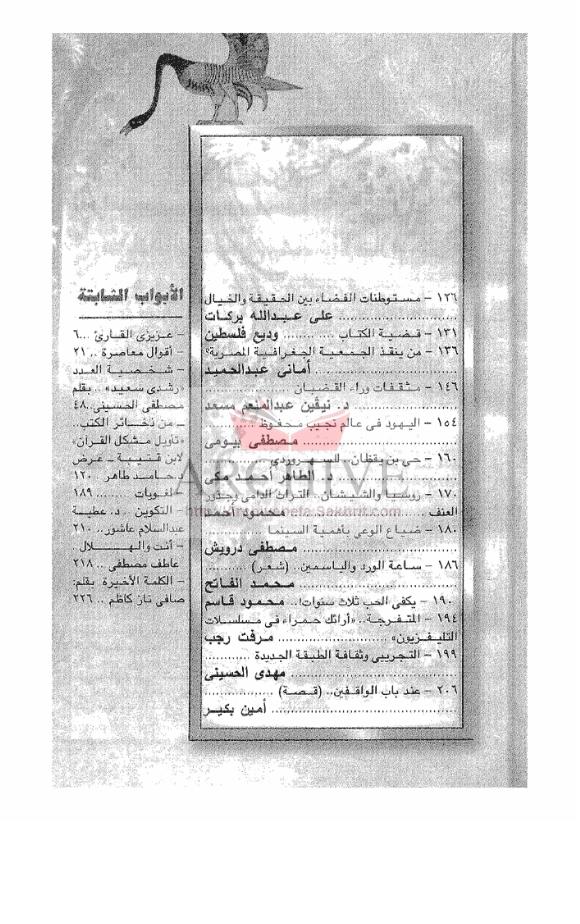 ١٢٦ - مستوطنات الفضاء بين الحقيقة والخيال
........................ على عبدالله بركات
١٣١ - قضية الكتاب ........... وديع فلسطين
١٣٦ - من ينقذ الجمعية الجغرافية المصرية؟
........................ أمانى عبدالحميد
١٤٦ - مثقفات وراء القضبان ................
........................ د. نيڤين عبدالمنعم مسعد
١٥٤ - اليهود فى عالم نجيب محفوظ ..........
........................ مصطفى بيومى
١٦٠ - حى بن يقظان.. للسهروردى ..........
........................ د. الطاهر أحمد مكى
١٧٠ - روسيا والشيشان.. التراث الدامى وجذور
العنف ........................ محمود أحمد
١٨٠ - ضياع الوعى بأهمية السينما ..........
........................ مصطفى درويش
١٨٦ - ساعة الورد والياسمين.. (شعر) ........
........................ محمد الفاتح
١٩٠ - يكفى الحب ثلاث سنوات!.. محمود قاسم
١٩٤ - المتفرجة.. «أرائك حمراء فى مسلسلات
التليفزيون» ................ مرفت رجب
١٩٩ - التجريبى وثقافة الطبقة الجديدة ..........
........................ مهدى الحسينى
٢٠٦ - عند باب الواقفين.. (قصة) ................
........................ أمين بكير
الأبواب الثابتة
- عزيزى القارئ ...٦
- أقوال معاصرة ..٢١
- شخصية العدد
«رشدى سعيد».. بقلم
مصطفى الحسينى.٤٨
- من ذخائر الكتب..
«تأويل مشكل القرآن»
لابن قتيبة - عرض
د. حامد طاهر ١٢٠
- لغويات ...... ١٨٩
- التكوين .. د. عطية
عبدالسلام عاشور.. ٢١٠
- أنت والهلال .
عاطف مصطفى .. ٢١٨
- الكلمة الأخيرة بقلم:
صافى ناز كاظم ... ٢٢٦
ARCHIVE
http://Archivebeta.Sakhrit.com